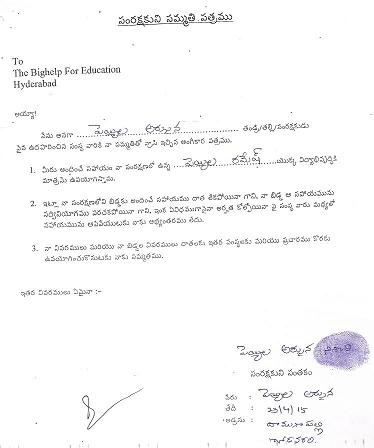 సంరక్షకుని సమ్మతి పత్రము
To
The Bighelp For Education
Hyderabad
అయ్యా!
నేను అనగా పెయ్యల అర్జున తండ్రి/తల్లి/సంరక్షకుడు
పైన ఉదహరించిన సంస్థ వారికి నా సమ్మతితో వ్రాసి ఇచ్చిన అంగీకార పత్రము.
1. మీరు అందించే సహాయం నా సంరక్షణలో ఉన్న పెయ్యల రమేష్ యొక్క విద్యాభివృద్ధికి
మాత్రమే ఉపయోగిస్తాను.
2. ఇట్లు నా సంరక్షణలోని బిడ్డకు అందించే సహాయము దాత లేకపోయినా గాని, నా బిడ్డ ఆ సహాయమును
సద్వినియోగము పరచకపోయినా గాని, ఇంక ఏవిధముగానైనా అర్హత కోల్పోయినా పై సంస్థ వారు మధ్యలో
సహాయమును ఆపివేయుటకు నాకు అభ్యంతరము లేదు.
3. నా వివరములు మరియు నా బిడ్డల వివరములు దాతలకు ఇతర సంస్థలకు మరియు ప్రచారము కొరకు
ఉపయోగించుకొనుటకు నాకు సమ్మతము.
ఇతర వివరములు ఏమైనా :-
పెయ్యల అర్జున
సంరక్షకుని సంతకం
పేరు : పెయ్యల అర్జున
తేది : 23/4/15
అడ్రసు :